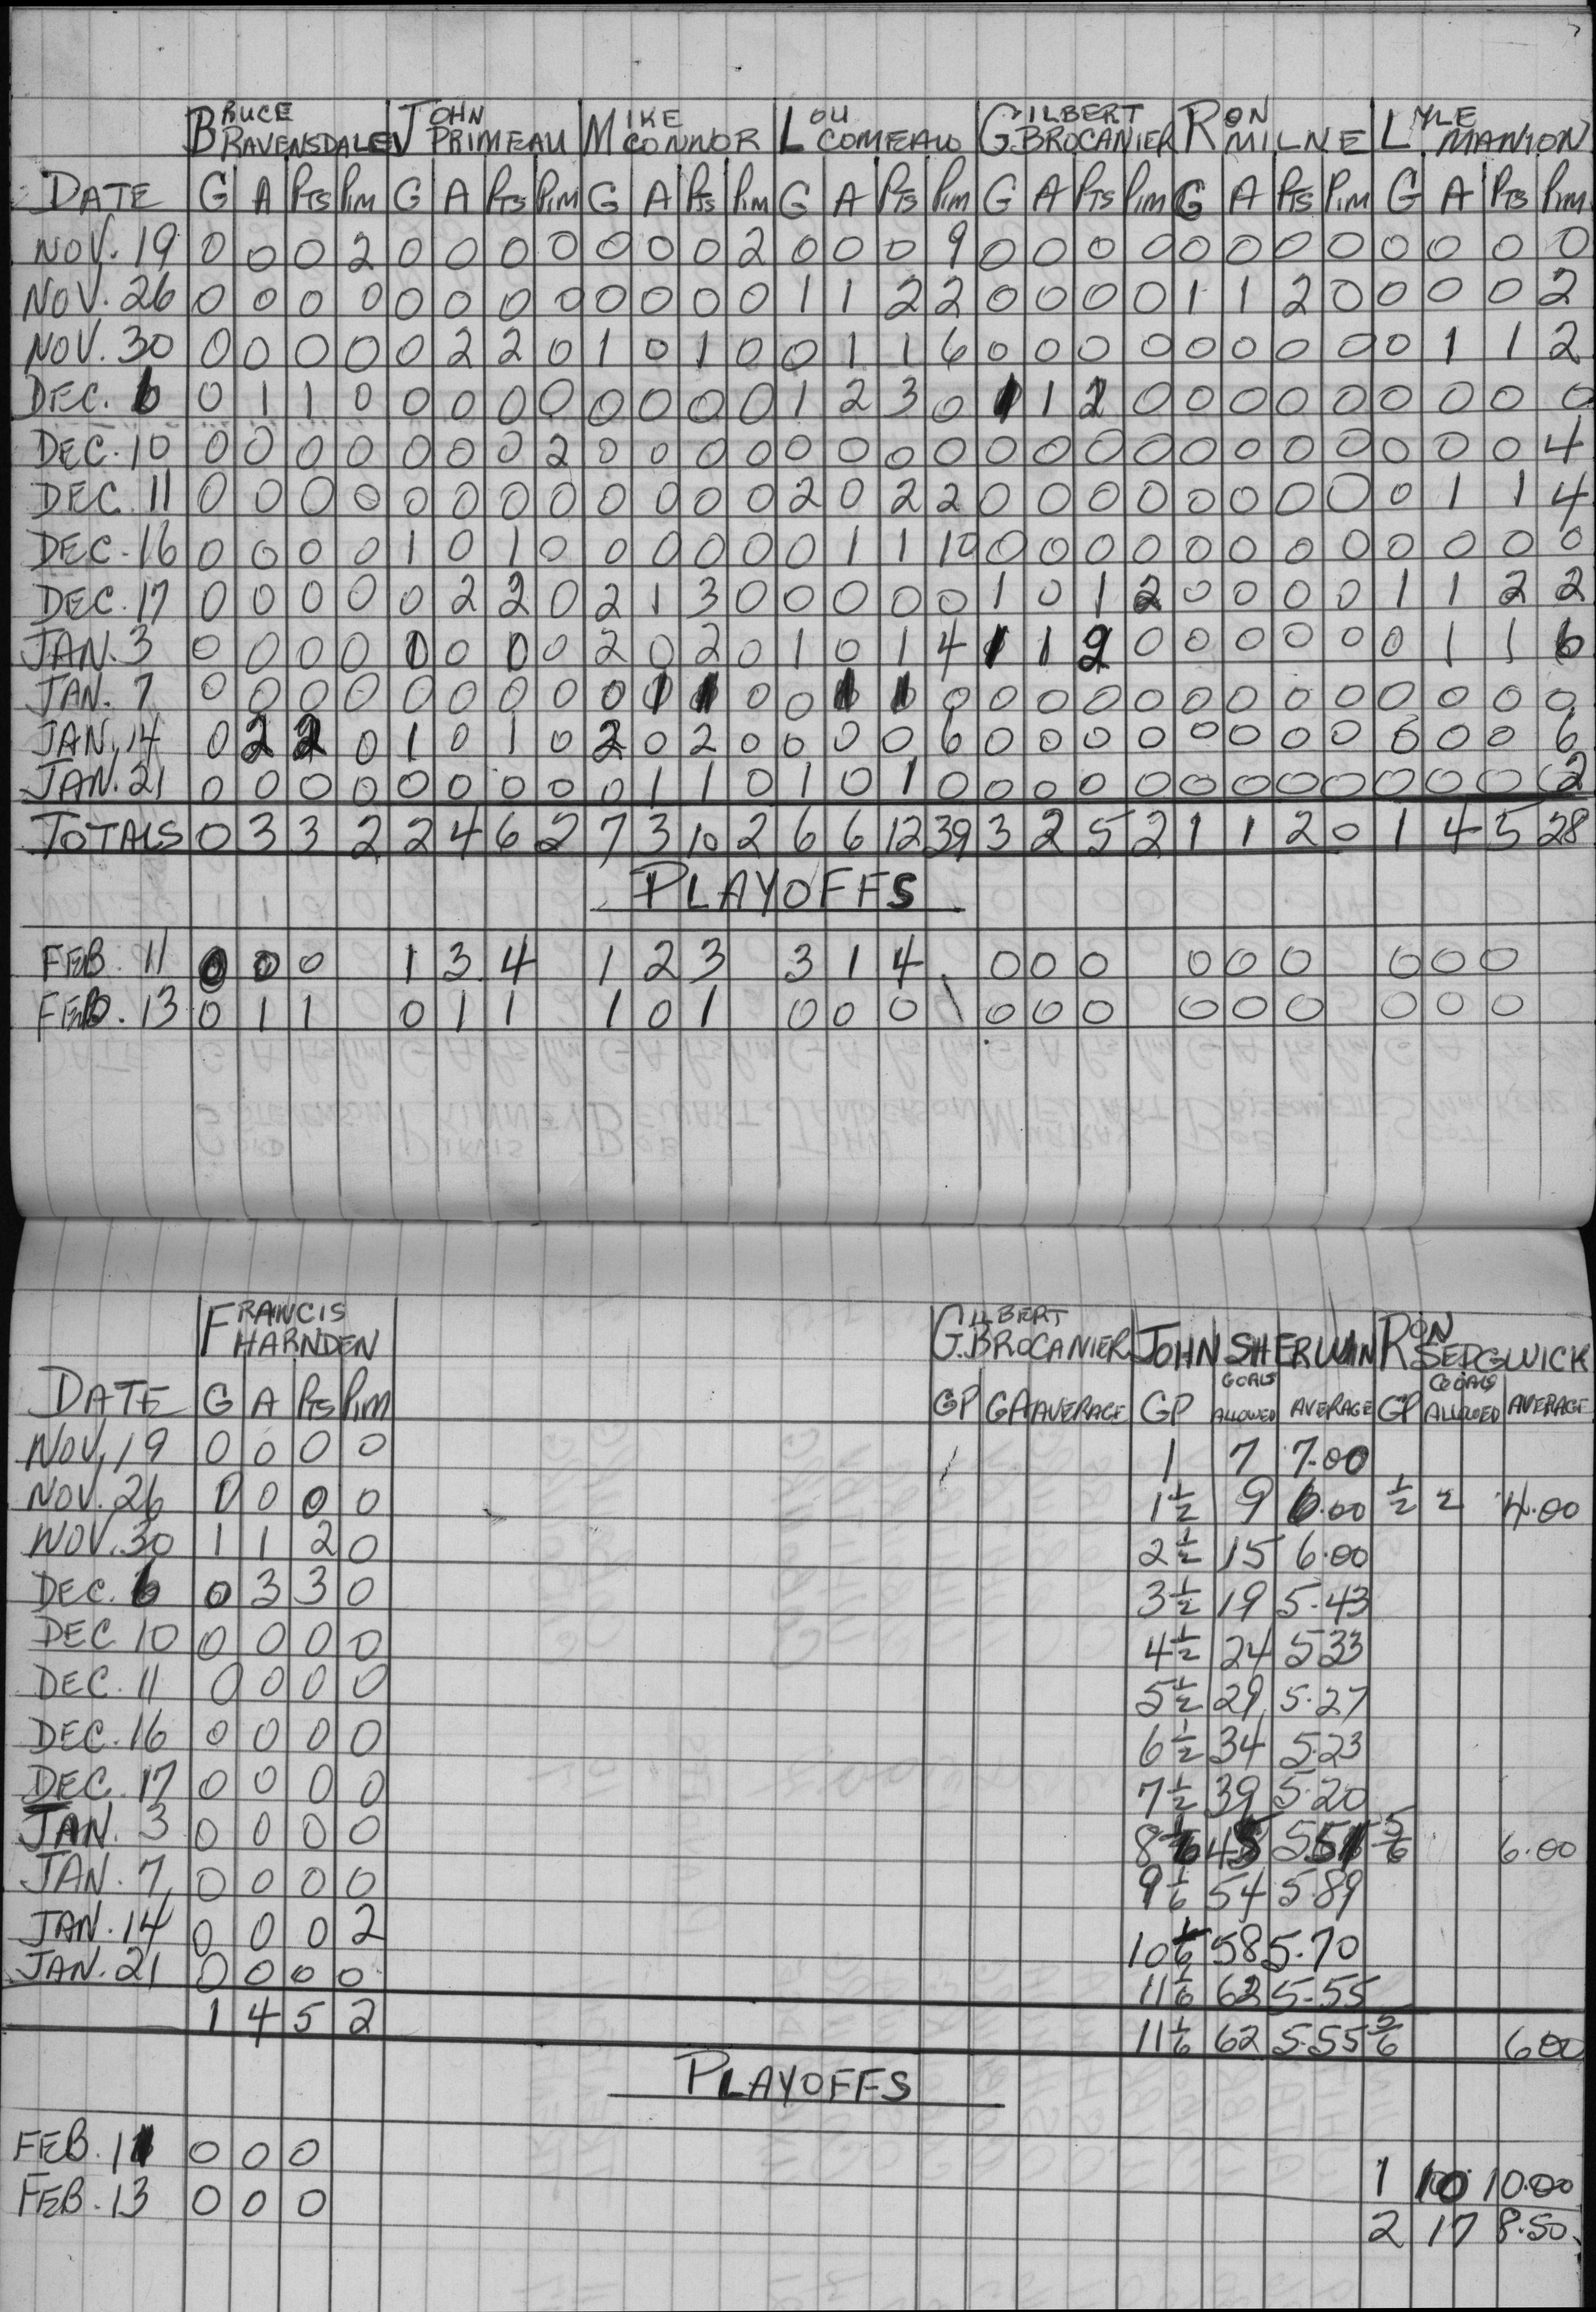 BRUCE RAVENSDALE JOHN PRIMEAU MIKE CONNOR LOU COMEAU GILBERT G.BROCANIER RON MILNE LYLE MANION
DATE G A PTS PIM G A PTS PIM G A PTS PIM G A PTS PIM G A PTS PIM G A PTS PIM G A PTS PIM
NOV. 19 0 0 0 2 0 0 0 0 0 0 0 2 0 0 0 9 0 0 0 0 0 0 0 0 0 0 0 0
NOV. 26 0 0 0 0 0 0 0 0 0 0 0 0 1 1 2 2 0 0 0 0 1 1 2 0 0 0 0 2
NOV. 30 0 0 0 0 0 2 2 0 1 0 1 0 0 1 1 6 0 0 0 0 0 0 0 0 0 1 1 2
DEC. 6 0 1 1 0 0 0 0 0 0 0 0 0 1 2 3 0 1 1 2 0 0 0 0 0 0 0 0 0
DEC. 10 0 0 0 0 0 0 0 2 0 0 0 0 0 0 0 0 0 0 0 0 0 0 0 0 0 0 0 4
DEC. 11 0 0 0 0 0 0 0 0 0 0 0 0 2 0 2 2 0 0 0 0 0 0 0 0 0 1 1 4
DEC. 16 0 0 0 0 1 0 1 0 0 0 0 0 0 1 1 10 0 0 0 0 0 0 0 0 0 0 0 0
DEC. 17 0 0 0 0 0 2 2 0 2 1 3 0 0 0 0 0 1 0 1 2 0 0 0 0 1 1 2 2
JAN. 3 0 0 0 0 0 0 0 0 2 0 2 0 1 0 1 4 1 1 2 0 0 0 0 0 0 1 1 6
JAN. 7 0 0 0 0 0 0 0 0 0 1 1 0 0 1 1 0 0 0 0 0 0 0 0 0 0 0 0 0
JAN. 14 0 2 2 0 1 0 1 0 2 0 2 0 0 0 0 6 0 0 0 0 0 0 0 0 0 0 0 6
JAN. 21 0 0 0 0 0 0 0 0 0 1 1 0 1 0 1 0 0 0 0 0 0 0 0 0 0 0 0 2
TOTALS 0 3 3 2 2 4 6 2 7 3 10 2 6 6 12 39 3 2 5 2 1 1 2 0 1 4 5 28
PLAYOFFS
FEB. 11 0 0 0 1 3 4 1 2 3 3 1 4 0 0 0 0 0 0 0 0 0
FEB. 13 0 1 1 0 1 1 1 0 1 0 0 0 0 0 0 0 0 0 0 0 0
FRANCIS HARNDEN GILBERT G.BROCANIER JOHN SHERWIN RON SEDGWICK
DATE G A PTS PIM GP GA AVERAGE GP GOALS ALLOWED AVERAGE GP GOALS ALLOWED AVERAGE
NOV. 19 0 0 0 0 1 7 7.00
NOV. 26 0 0 0 0 1½ 9 6.00 ½ 2 4.00
NOV. 30 1 1 2 0 2½ 15 6.00
DEC. 6 0 3 3 0 3½ 19 5.43
DEC 10 0 0 0 0 4½ 24 5.33
DEC. 11 0 0 0 0 5½ 29 5.27
DEC. 16 0 0 0 0 6½ 34 5.23
DEC. 17 0 0 0 0 7½ 39 5.20
JAN. 3 0 0 0 0 8⅙ 45 5.51 ⅚ 6.00
JAN. 7 0 0 0 0 9⅙ 54 5.89
JAN. 14 0 0 0 2 10⅙ 58 5.70
JAN. 21 0 0 0 0 11⅙ 62 5.55
1 4 5 2 11⅙ 62 5.55 ⅚ 6.00
PLAYOFFS
FEB. 11 0 0 0 1 10 10.00
FEB. 13 0 0 0 2 17 8.50